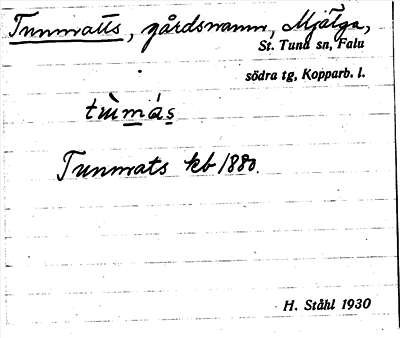 Tunmats, gårdsnamn, Mjälga,
St. Tuna sn, Falu
södra tg, Kopparb. l.
Tunmats kb 1880.
H. Ståhl 1930